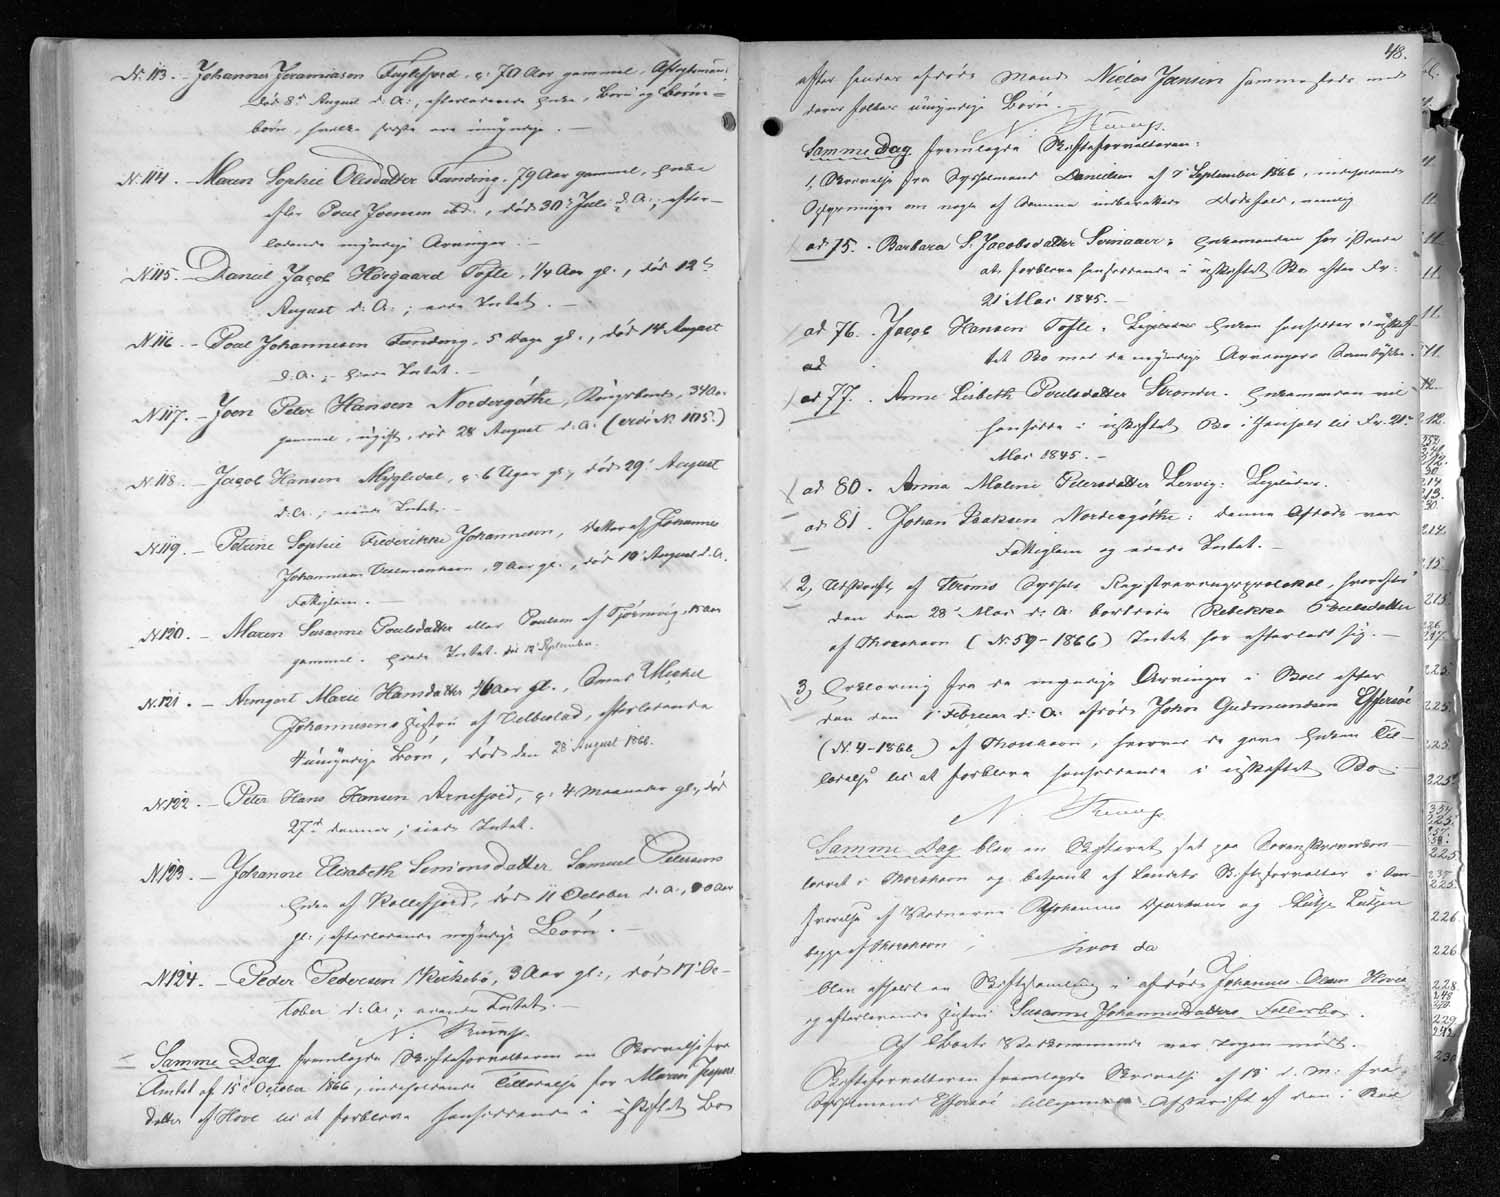 N. 113. - Johannes Joramiason Fuglefjord, c: 70 Aar gammel, Aftægtsmand,
død 8de August d. A:, efterladende Enke, Børn og Børne-
børn, hvilke sidste ere umyndige. -
N. 114. - Maren Sophie Olesdatter Funding, 79 Aar gammel, Enke
efter Poul Joensen ibd., død 30te Juli d. A.; efter-
ladende myndige Arvinger. -
N. 115. - Daniel Jacob Højgaard Tofte, 1/4 Aar gl., død 12te
August d. A.; eiede Intet. -
N. 116. - Poul Johannesen Funding, 5 Dage gl., død 14 August
d. A.; eiede Intet. -
N. 117. - Joen Peter Hansen Nordergöthe, Kongsbonde, 34 Aar
gammel, ugift, død 28 August d. A. (vide N. 105.)
N. 118. - Jacob Hansen Mygledal, c: 6 Uger gl., død 29de August
d. A.; eiede Intet. -
N. 119. - Petrine Sophie Frederikke Johannesen, Datter af Johannes
Johannesen Vestmanhavn, 9 Aar gl., død 10de August d. A.
Fattiglem. -
N. 120. - Maren Susanne Poulsdatter eller Poulsen af Tjörnevig, Aar
gammel. Eiede Intet. død 12 September.
N. 121. - Armgart Marie Hansdatter 46 Aar gl., Michel
Johannesens Hustru af Velbestad, efterladende
4 umyndige Børn, død den 28de August 1866.
N. 122. - Peter Hans Hansen Arnefjord, c: 4 Maaneder gl., død
27de dennes; eiede Intet.
N. 123. - Johanne Elisabeth Semionsdatter Samuel Petersens
Enke af Kollefjord, død 11 October d. A., 90 Aar
gl.; efterladende myndige Børn. -
N. 124. - Peder Pedersen Kirkebø, 3 Aar gl., død 17de Oc-
tober d. A.; eiede Intet. -
Samme Dag fremlagde Skifteforvalteren en Skrivelse fra
Amtet af 15de October 1866, indeholdende Tilladelse for Maren Jespers
datter af Hove til at forblive hensiddende i uskiftet Bo
48.
efter hendes afdøde Mand Niclas Jansen sammesteds med
deres fælles umyndige Børn. -
Samme Dag fremlagde Skifteforvalteren:
1, Skrivelse fra Sysselmand Danielsen af 7de September 1866, indeholdende
Oplysninger om nogle af samme indberettede Dødsfald, nemlig
ad 75. - Barbara S. Jacobsdatter Svinaaer: Enkemanden har
at forblive hensiddende i uskiftet Bo efter Fr:
21de Mai 1845. -
ad 76. - Jacob Hansen Tofte. Enken hensidder i uskif-
tet Bo med de myndige Arvingers Samtykke.
ad
ad 77. - Anne Lisbeth Poulsdatter Strender. Enkemanden vil
hensidde i uskiftet Bo i Henhold til Fr. 21de
Mai 1845. -
ad 80. - Anna Malene Petersdatter Lervig: Ligeledes.
ad 81. Johan Isaksen Nordergöthe: denne Afdøde var
Fattiglem og eiede Intet. -
2, Udskrift af Strømø Syssels Registreringsprotokol, hvorefter
den den 28de Mai d: A: bortdøde Rebekka Poulsdatter
af Thorshavn (N: 59-1866) Intet har efterladt sig. -
3, Erklæring fra de myndige Arvinger i Boet efter
den den 1ste Februar d: A: afdøde John Gudmundsen Effersöe
(N. 4-1866) af Thorshavn, hvorved de give Enken Til-
ladelse til at forblive hensiddende i uskiftet Bo. -
Samme Dag blev en Skifteret sat paa Sorenskriverkon-
toret i Thorshavn og betjent af Landets Skifteforvalter i Over-
værelse af Vidnerne Johannes og
begge af Thorshavn; hvor da
blev afholdt en Skiftesamling i afdøde Johannes Olsen Hovie
og efterlevende Hustru Susanne Johannesdatters Fællesbo.
Af Boets Vedkommende var Ingen mødt.
Skifteforvalteren fremlagde Skrivelse af 13 d. M: fra
Sysselmand Effersöe tilligemed Afskrift af den i Boet